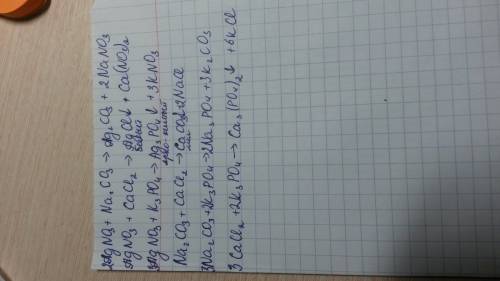 2AgNO3 + Na2CO3 → Ag2CO3 + 2NaNO3
2AgNO3 + CaCl2 → AgCl↓ + Ca(NO3)2
белый
3AgNO3 + K3PO4 → Ag3PO4↓ + 3KNO3
ярко-желтый
Na2CO3 + CaCl2 → CaCO3↓+2NaCl
3Na2CO3 +2K3PO4→2Na3PO4 +3K2CO3
3CaCl2 +2K3PO4 → Ca3(PO4)2↓ +6KCl